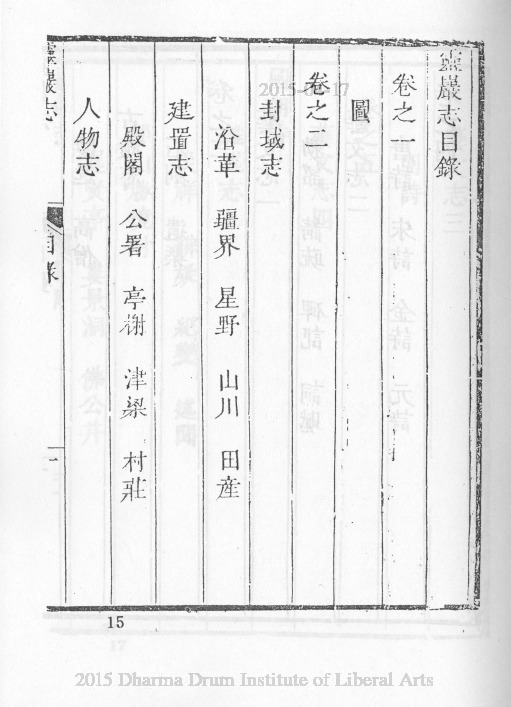 靈巖志目錄
卷之一
圖
卷之二
封域志
沿革 疆界 星野 山川 田產
建置志
殿閣 公署 亭榭 津梁 村莊
人物志
靈巖志 目錄 一
15
2015 Dharma Drum Institute of Liberal Arts